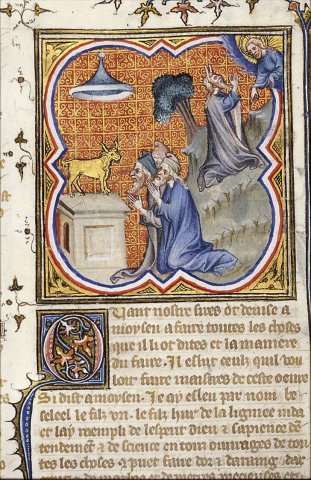 Quant nostre sires ot devise a
moysen a faire toutes les choses
que il li ot dites et la maniere
du faire. Il eslut ceulz qui vou
loit faire maistres de ceste oeuvre
Si dist a moysen. Je ay esleu par nom be
seleel le filz vri. le filz hur de la lignee iuda
et lay raempli de lesperit dieu & sapience den
tendement & de science en tous ouvrages de tou
tes les choses q puet faire dor & dargent, dar